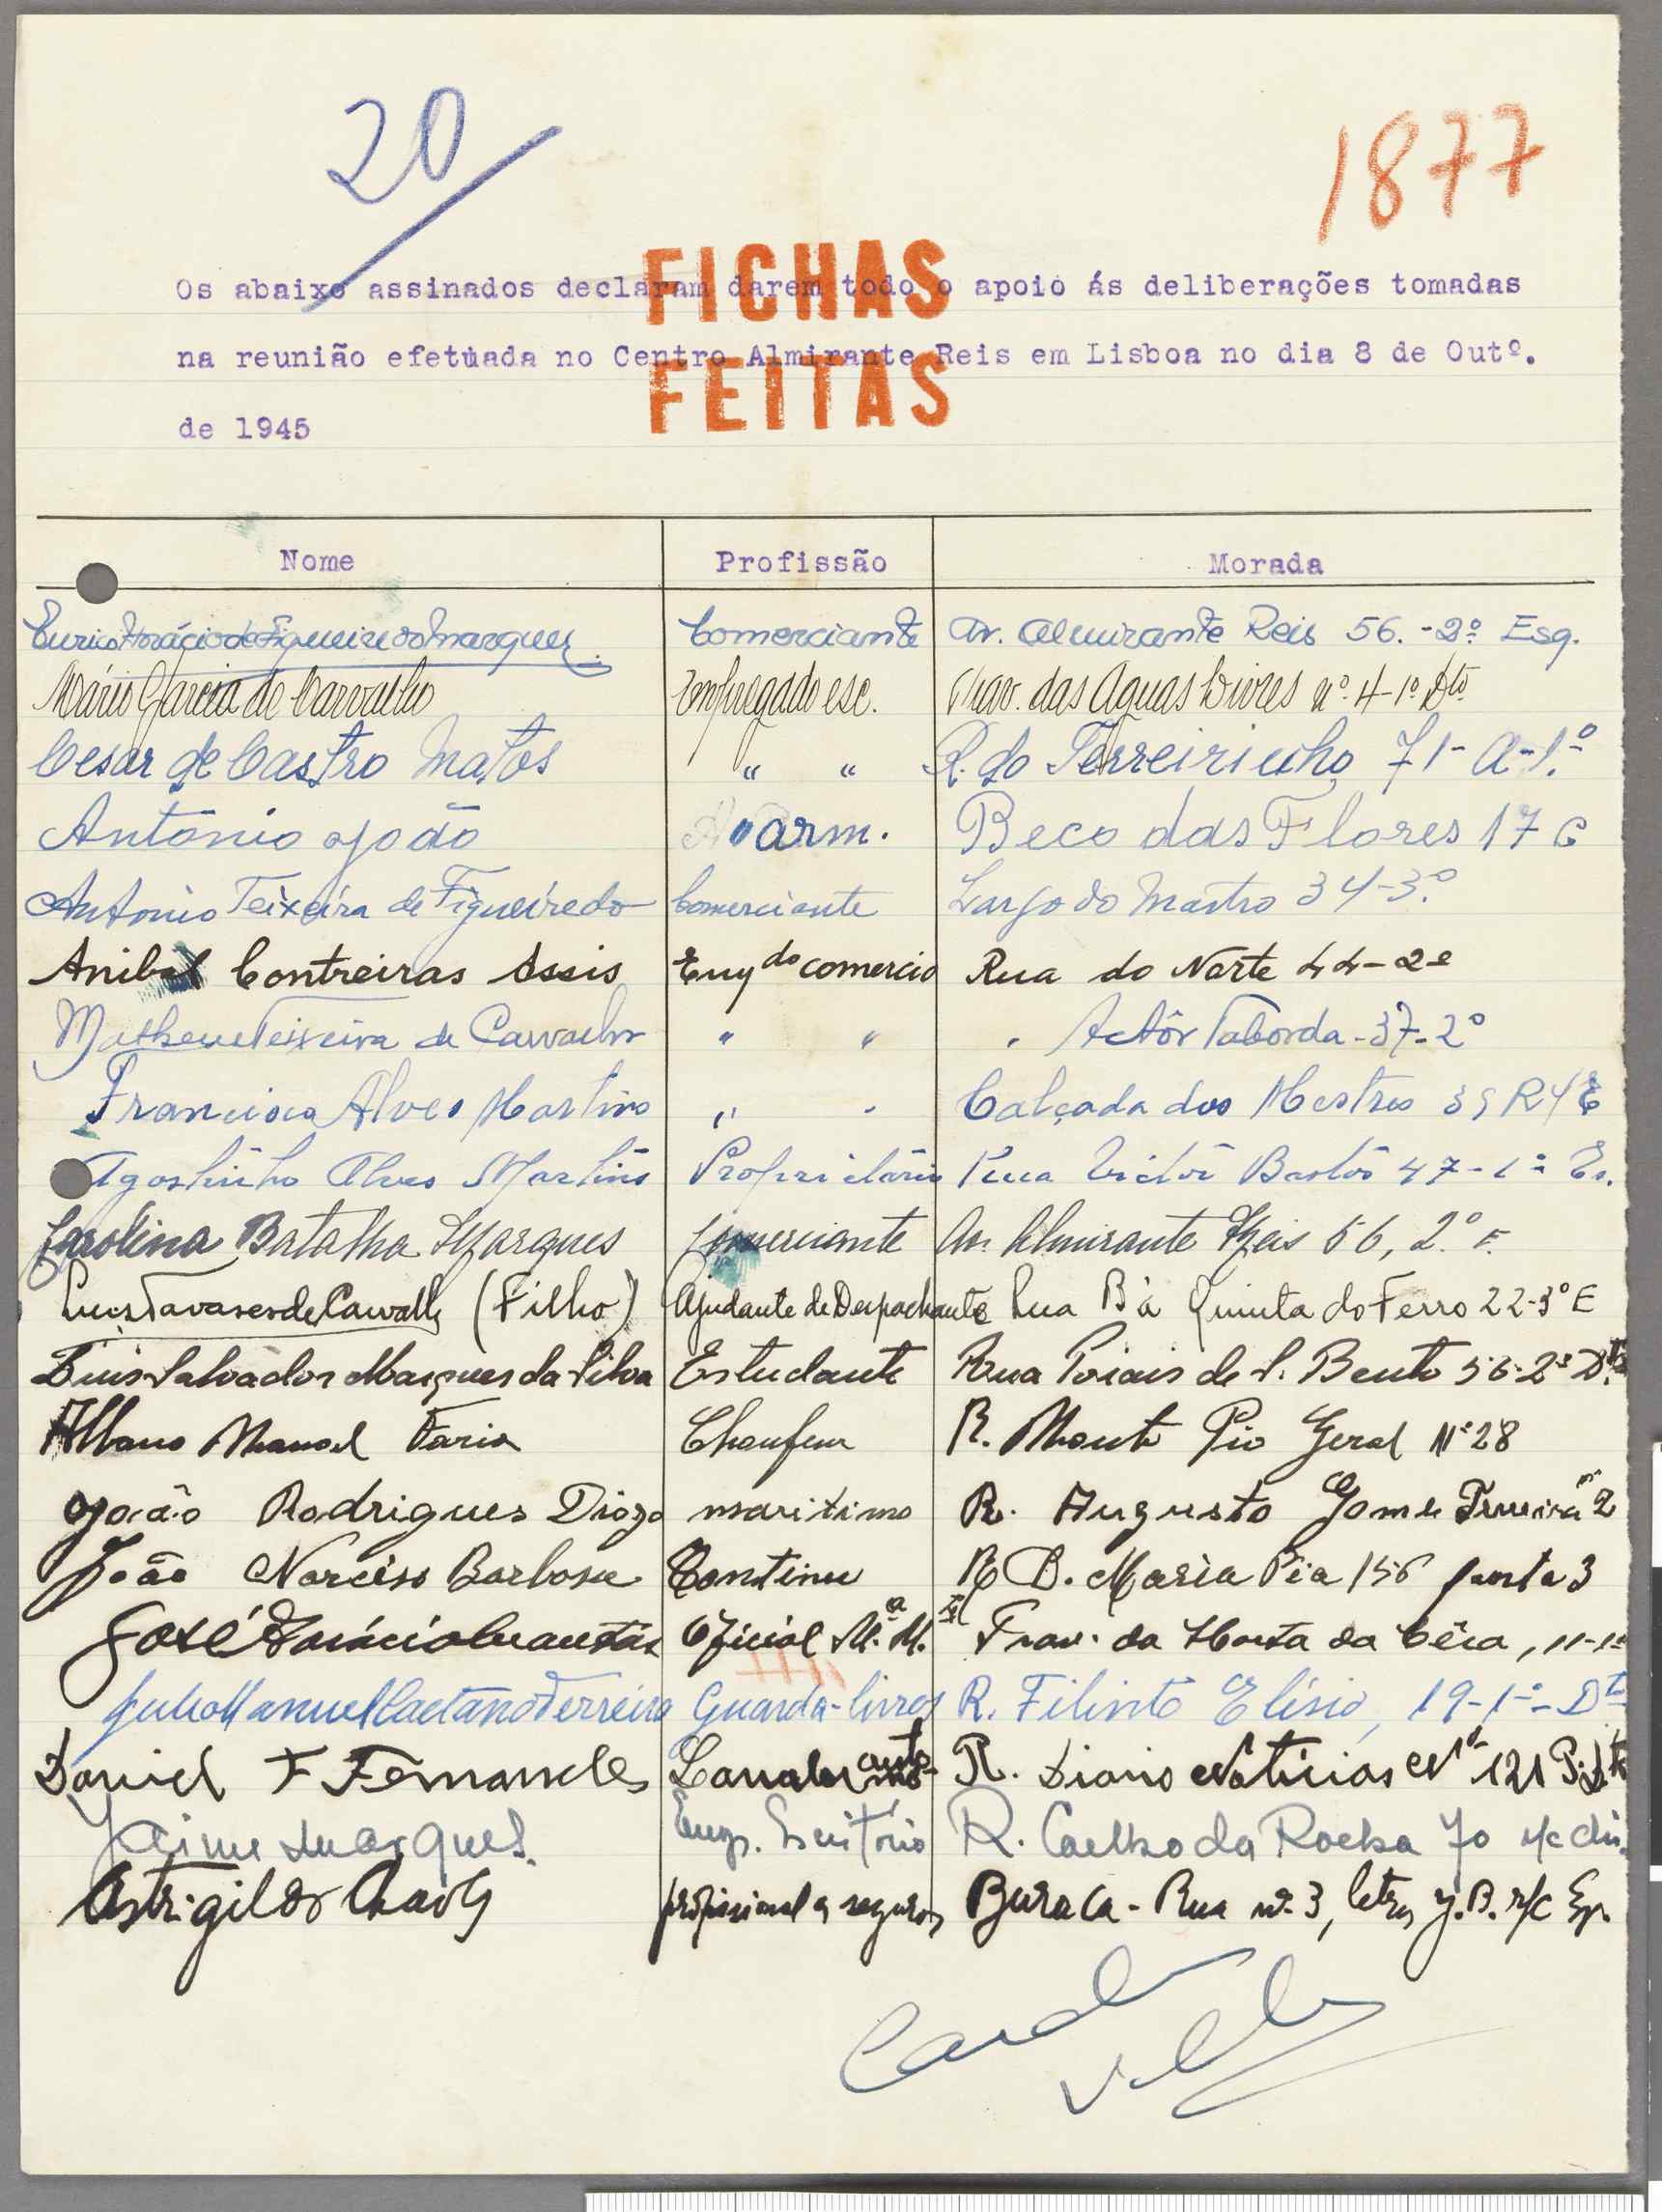 20
1877
FICHAS
FEITAS
Os abaixo assinados declaram darem todo o apoio ás deliberações tomadas
na reunião efetuada no Centro Almirante Reis em Lisboa no dia 8 de Outº.
de 1945
Nome Profissão Morada
Eurico Horácio de Figueiredo Marques Comerciante Av. Almirante Reis 56.-2º Esq.
Mário Garcia de Carvalho Empregado esc. Trav. das Aguas Livres nº 4-1º Dto
Cesar de Castro Matos " " R. do Terreirinho 71-A-1º
António João arm. Beco das Flores 17 C
Antonio Teixeira de Figueiredo Comerciante Largo do Mastro 34-3º
Anibal Contreiras Assis Emp do comercio Rua do Norte 44-2º
Matheus Teixeira de Carvalho " " " Actôr Taborda-37-2º
Alves Martins " " Calçada dos Mestres 39 R/ E
Agostinho Alves Martins Proprietário Rua Victor Bastos 47-1º Es.
Carolina Batalha Marques Comerciante Av. Almirante Reis 56, 2º E.
Luis Tavares de Carvalho (Filho) Ajudante de Despachante Rua B à Quinta do Ferro 22-3º E
Luis Salvador Marques da Silva Estudante Rua Poiais de S. Bento 56-2º D.to
Albano Manoel Faria Chaufeur R. Monte Pio Geral Nº 28
João Rodrigues Diogo maritimo R. Augusto Gomes Ferreira nº 2
João Narciso Barbosa Continu R D. Maria Pia 156 porta 3
José Oficial M.ª M. Trav. da Horta da Cêra, 11-1º
Julio Manuel Caetano Ferreira Guarda-livros R. Filinto Elísio, 19-1º-Dto
Daniel F Fernandes R. Diario Noticias Nº 121
Jaime Marques. Emp. Escritório R. Coelho da Rocha 70 r/c dir.
Astrigildo Chaves profissional de seguros Buraca-Rua nº 3, letras J.B. r/c Esq.